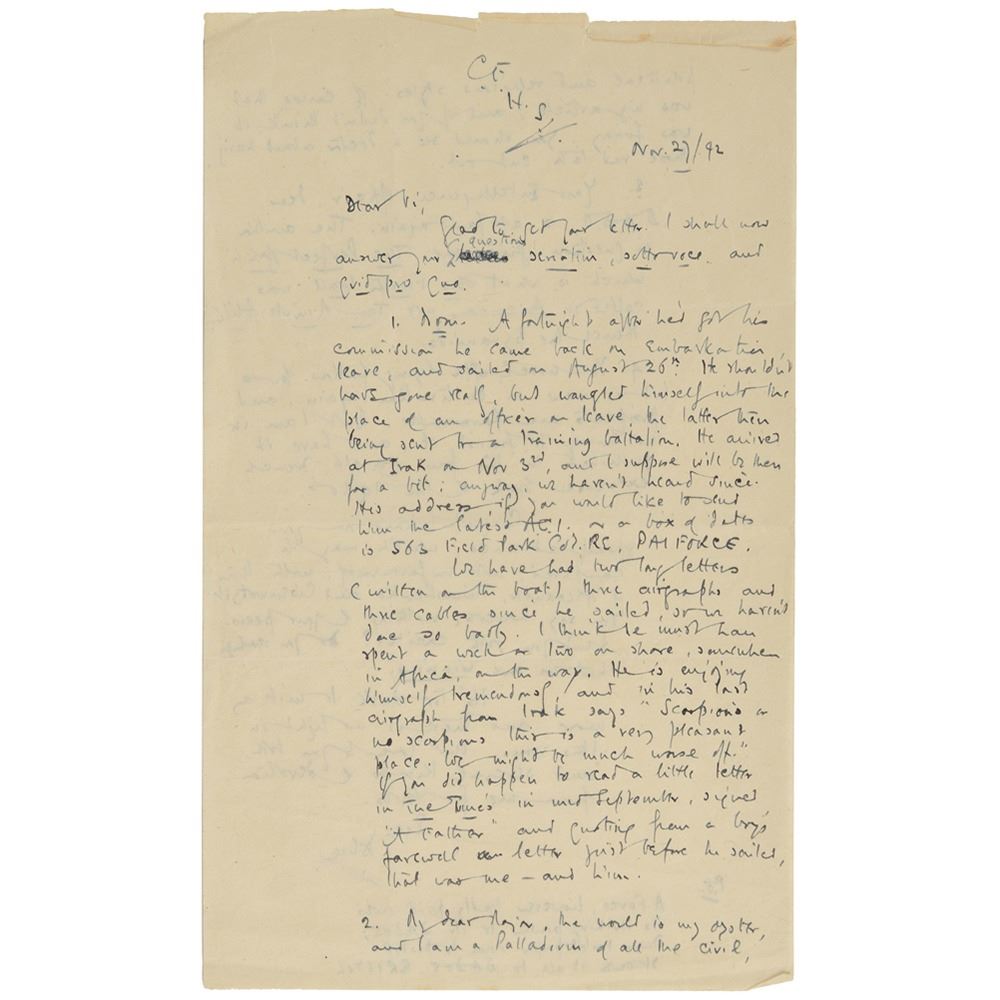 C.F.
H.
S.
Nov. 27/42
Dear Vi,
Glad to get your letter. I shall now
answer your questions seriatim, sotto voce and
quid pro quo.
1. Mom. A fortnight after he'd got his
commission he came back on Embarkation
leave, and sailed on August 26th. He shouldn't
have gone really, but wangled himself into the
place of an officer on leave, the latter then
being sent to a training battalion. He arrived
at Irak on Nov 3rd, and I suppose will be there
for a bit; anyway, we haven't heard since.
His address, if you would like to send
him the latest A.C.I. or a box of dates
is 563 Field Park Coy. RE, PAIFORCE.
We have had two long letters
(written on the boat) three airgraphs and
three cables since he sailed, so we haven't
done so badly. I think he must have
spent a week or two on shore, somewhere
in Africa, on the way. He is enjoying
himself tremendously, and in his last
airgraph from Irak says "Scorpions or
no scorpions this is a very pleasant
place. We might be much worse off."
If you did happen to read a little letter
in The Times in mid September, signed
"A Father" and quoting from a boy's
farewell letter just before he sailed,
that was me — and him.
2. My dear Major, the world is my oyster,
and I am a Palladium of all the civil,